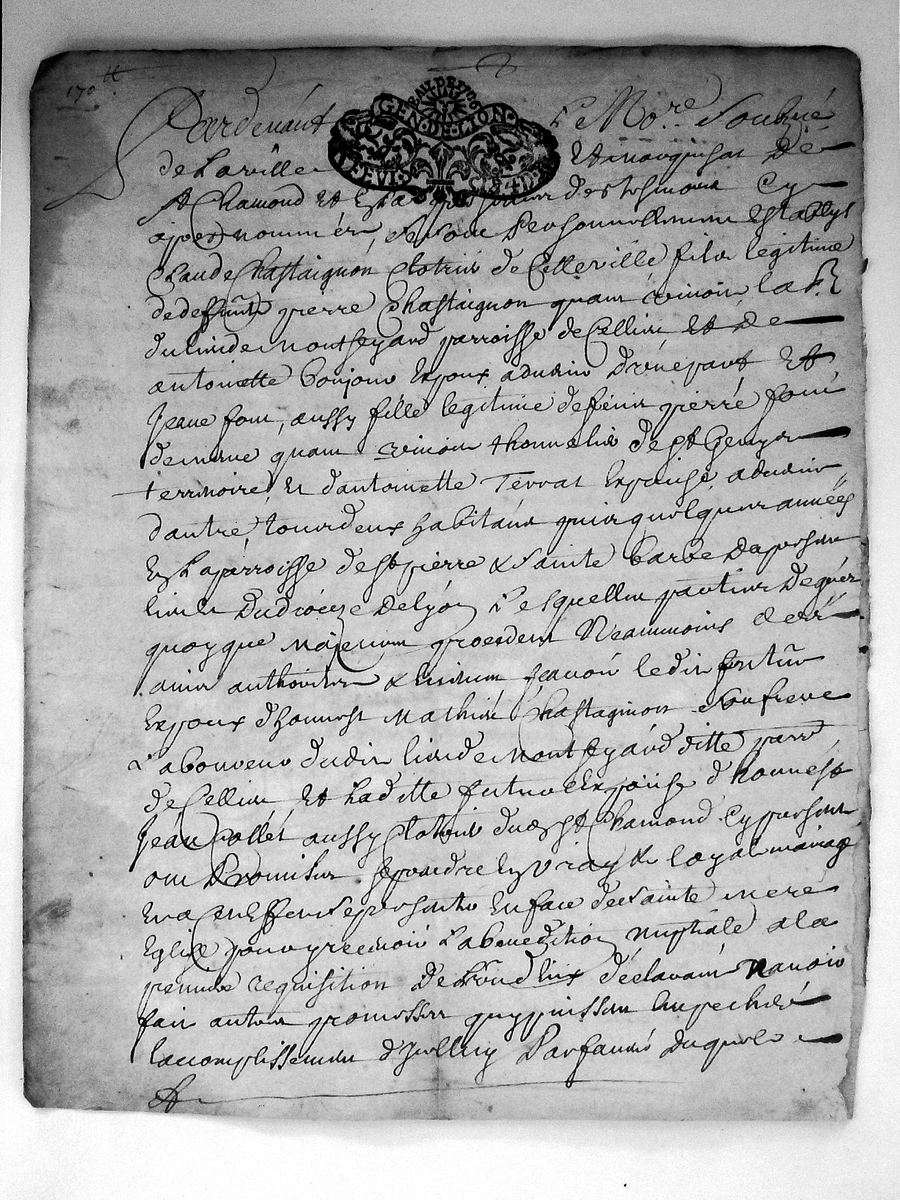 Pardevant le No.re Soubzné
GEN·DE·LION
de La ville et marquisat de
St Chamond et
apres nommés, personnellement establys
Claude Chastaignon Clotrier de Celleville filz legitime
de deffunt pierre Chastaignon quand vivoit, la r
du lieu de Montheyard parroisse de Cellieu et de
antoinette Coujour Espoux advenir d'une part Et
Jeane four, aussy fille legitime de feu pierre four
de mesme quand vivoit thonnelier de St Genys
terrenoire, Et d'antoinette Terrat Espouse advenir
d'autre, tous deux habitans puis quelques années
En La parroisse de St pierre & Sainte barbe dapresent
lieu du dioceze de Lyon Lesquelles parties de gré
quoyque majeures procedent Neammoins de
authorités & scavoir ledit futur
Espoux d'honnest Mathieu Chastagnon son frere
Laboureur dudit lieu de Montheyard ditte parr
de Cellieu Et Laditte future Espouse d'honnest
Jean Collet aussy Clotrier dud St Chamond Cy present
ont Promis se prendre En vray & loyal mariage
En a cet Effet se presenter En face de Sainte mere
Eglise pour y recevoir La benediction nuptiale a la
premiere requisition de l'un d'eux déclarant n'avoir
fait autres promesses qui puissent Empecher
laccomplissement d'Icelluy En faveur duquel